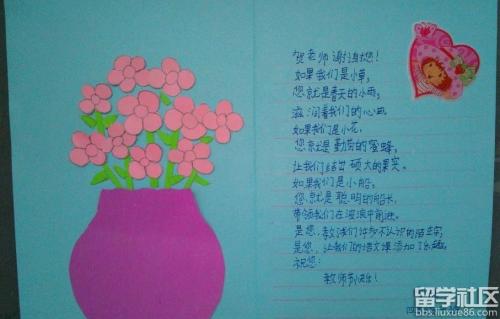 贺老师谢谢您!
如果我们是小草,
您就是春天的小雨,
滋润着我们的心田,
如果我们是小花,
您就是勤劳的蜜蜂,
让我们结出硕大的果实。
如果我们是小船,
您就是聪明的船长,
带领我们在波浪中前进。
是您,教我们许多不认识的
是您,让我们的语文课添加了乐趣,
祝您:
教师节快乐!
留学社区
bbs.liuxue86.com